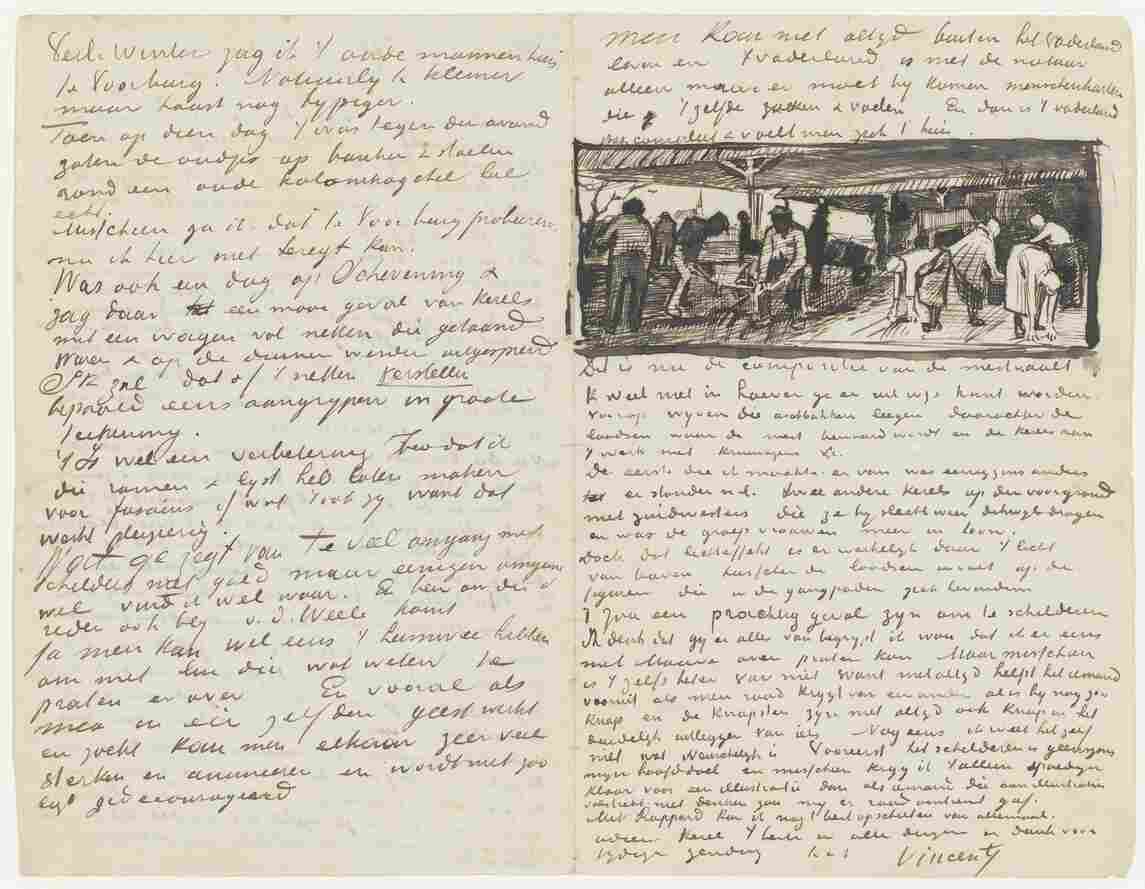 Verl. Winter zag ik 't oude mannenhuis
te Voorburg. Natuurlijk kleiner
maar haast nog typiger.
Toen op dien dag 't was tegen den avond
zaten de oudjes op banken & stoelen
rond een oude kolomkagchel
echt.
Misschien ga ik dat te Voorburg probeeren
nu ik hier niet teregt kan.
Was ook een dag op Schevening &
zag daar een mooi geval van kerels
met een wagen vol netten die getaand
waren & op de duinen werden uitgespreid
Ik zal dat of 't netten herstellen
bepaald eens aangrijpen in groote
teekening.
't Is wel een verbetering Theo dat ik
die ramen & lijst heb laten maken
voor fusains of wat 't ook zij want dat
werkt plezierig.
Wat ge zegt van te veel omgang met
schilders niet goed maar eenigen omgang
wel vind ik wel waar. En ben om die
reden ook blij v. d. Weele komt
Ja men kan wel eens 't heimwee hebben
om met lui die wat weten te
praten er over En vooral als
men in een zelfden geest werkt
en zoekt kan men elkaar zeer veel
sterken en animeeren en wordt niet zoo
ligt gedecourageerd
men kan niet altijd buiten het vaderland
leven en 't vaderland is niet de natuur
alleen maar er moet bij komen menschenharten
die 't zelfde zoeken & voelen En dan is 't vaderland
pas compleet & voelt men zich t'huis.
Dit is nu de compositie van de mestvaalt
Ik weet niet in hoever ge er uit wijs kunt worden.
Voorop wijven die aschbakken leegen daarachter de
loodsen waar de mest bewaard wordt en de kerels aan
't werk met kruiwagens &c.
De eerste die ik maakte er van was eenigzins anders
er stonden n.l. twee andere kerels op den voorgrond
met zuidwesters die ze bij slecht weer dikwijls dragen
en was de groep vrouwen meer in toon.
Doch dat lichteffekt is er werkelijk daar 't licht
van boven tusschen de loodsen invalt op de
figuren die in de gangpaden zich bevinden
't Zou een prachtig geval zijn om te schilderen
Ik denk dat gij er alles van begrijpt ik wou dat ik er eens
met Mauve over praten kon Maar misschien
is 't zelfs beter van niet want niet altijd helpt het iemand
vooruit als men raad krijgt van een ander al is hij nog zoo
knap en de knapsten zijn niet altijd ook knap in het
duidelijk uitleggen van iets Nog eens ik weet het zelf
niet wat wenschelijk is Vooreerst het schilderen is geenszins
mijn hoofddoel en misschien krijg ik 't alleen spoediger
klaar voor een illustratie dan als iemand die aan illustraties
volstrekt niet denken zou mij er raad omtrent gaf.
Met Rappard kan ik nog 't best opschieten van allemaal.
adieu kerel 't beste in alle dingen en dank voor
tijdige zending
Vincent